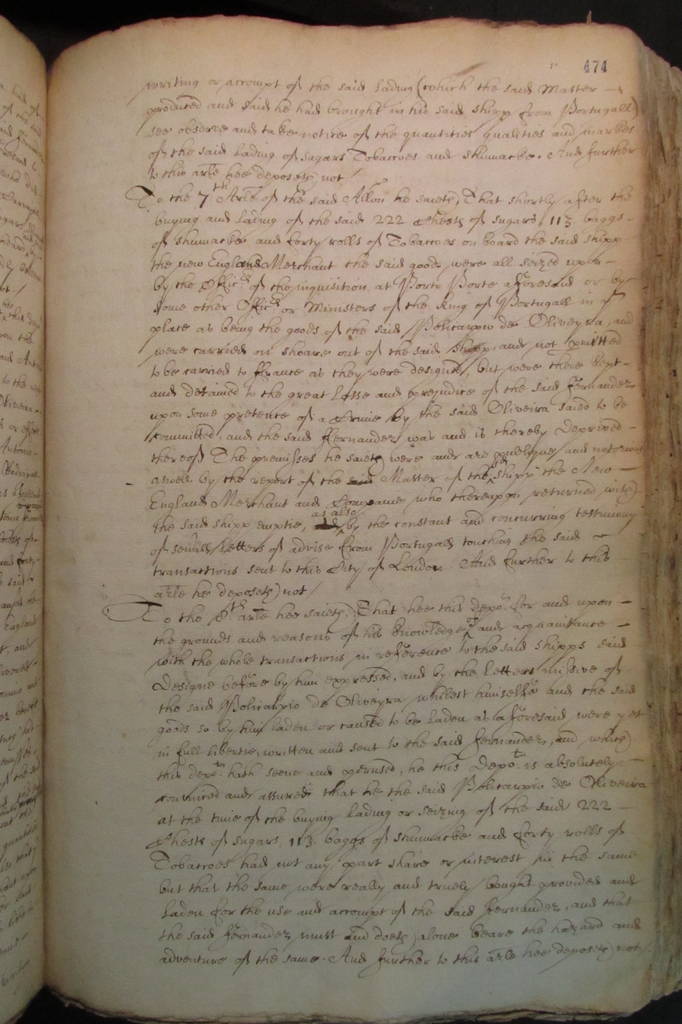 474
writing or accompt of the said lading (which the said Master
produced and said he had brought in his said shipp from Portugall)
see observe and take notice of the quantities qualities and markes
of the said lading of sugars Tobaccoes and shumacke. And further
to this arle hee deposeth not /
To the 7th Arle of the said Allon he saieth, That shortly after the
buying and lading of the said 222 chests of sugars 113 baggs
of shumacke and forty rolls of Tobaccoes on board the said shipp
the new England Merchant the said goods were all seized upon
by the Officrs of the inquisition at Porto Porte aforesaid or by
some other Officrs or Ministers of the King of Portugall in yt
place as being the goods of the said Policarpio de Oliveyra, and
were carried on shoare out of the said shipp, and not permitted
to be carried to France as they were designed, but were there kept
and detained to the great losse and prejudice of the said Fernandez
upon some pretence of a Crime by the said Oliveira said to be
committed, and the said Fernandez was and is thereby deprived
thereof The premisses he saieth were and are publique and notorious
aswell by the report of the said Master of the shipp the New
England Merchant and Companie who thereupon returned with
the said shipp emptie, as also by the constant and concurring testimony
of severall letters of advise from Portugall touching the said
transactions sent to this City of London And further to this
arle he deposeth not /
To the 8th arle hee saieth, That hee this depot for and upon
the grounds and reasons of his knowledge and acquaintance
with the whole transactions in reference to the said shipps said
designe before by him expressed, and by the letters missive of
the said Policarpio de Oliveyra whilest himselfe and the said
goods so by him laden or caused to be laden as aforesaid, were yet
in full libertie, written and sent to the said Fernandez, and which
this depot hath seene and perused, he this depot is absolutely
convinced and assured that he the said Policarpio de Oliveira
at the time of the buying lading or seizing of the said 222
Chests of sugars 113 baggs of shumacke and forty rolls of
Tobaccoes had not any part share or interest in the same
but that the same were really and truely bought provided and
laden for the use and accompt of the said Fernandez, and that
the said Fernandez must and doeth alone beare the hazard and
adventure of the same. And further to this arle hee deposeth not /